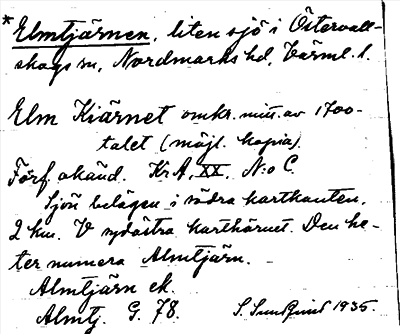 *Elmtjärnen, liten sjö i Östervall-
skogs sn, Nordmarks hd, Värml. l.
Elm Kiärnet omkr. mitt. av 1700-
talet (möjl. kopia).
Förf. okänd. Kr.A, XX, N:o C.
Sjön belägen i södra kartkanten,
2 km. V sydöstra karthörnet. Den he-
ter numera Almtjärn.
Almtjärn ek.
Almtj. G. 78. S. Sundquist 1935.